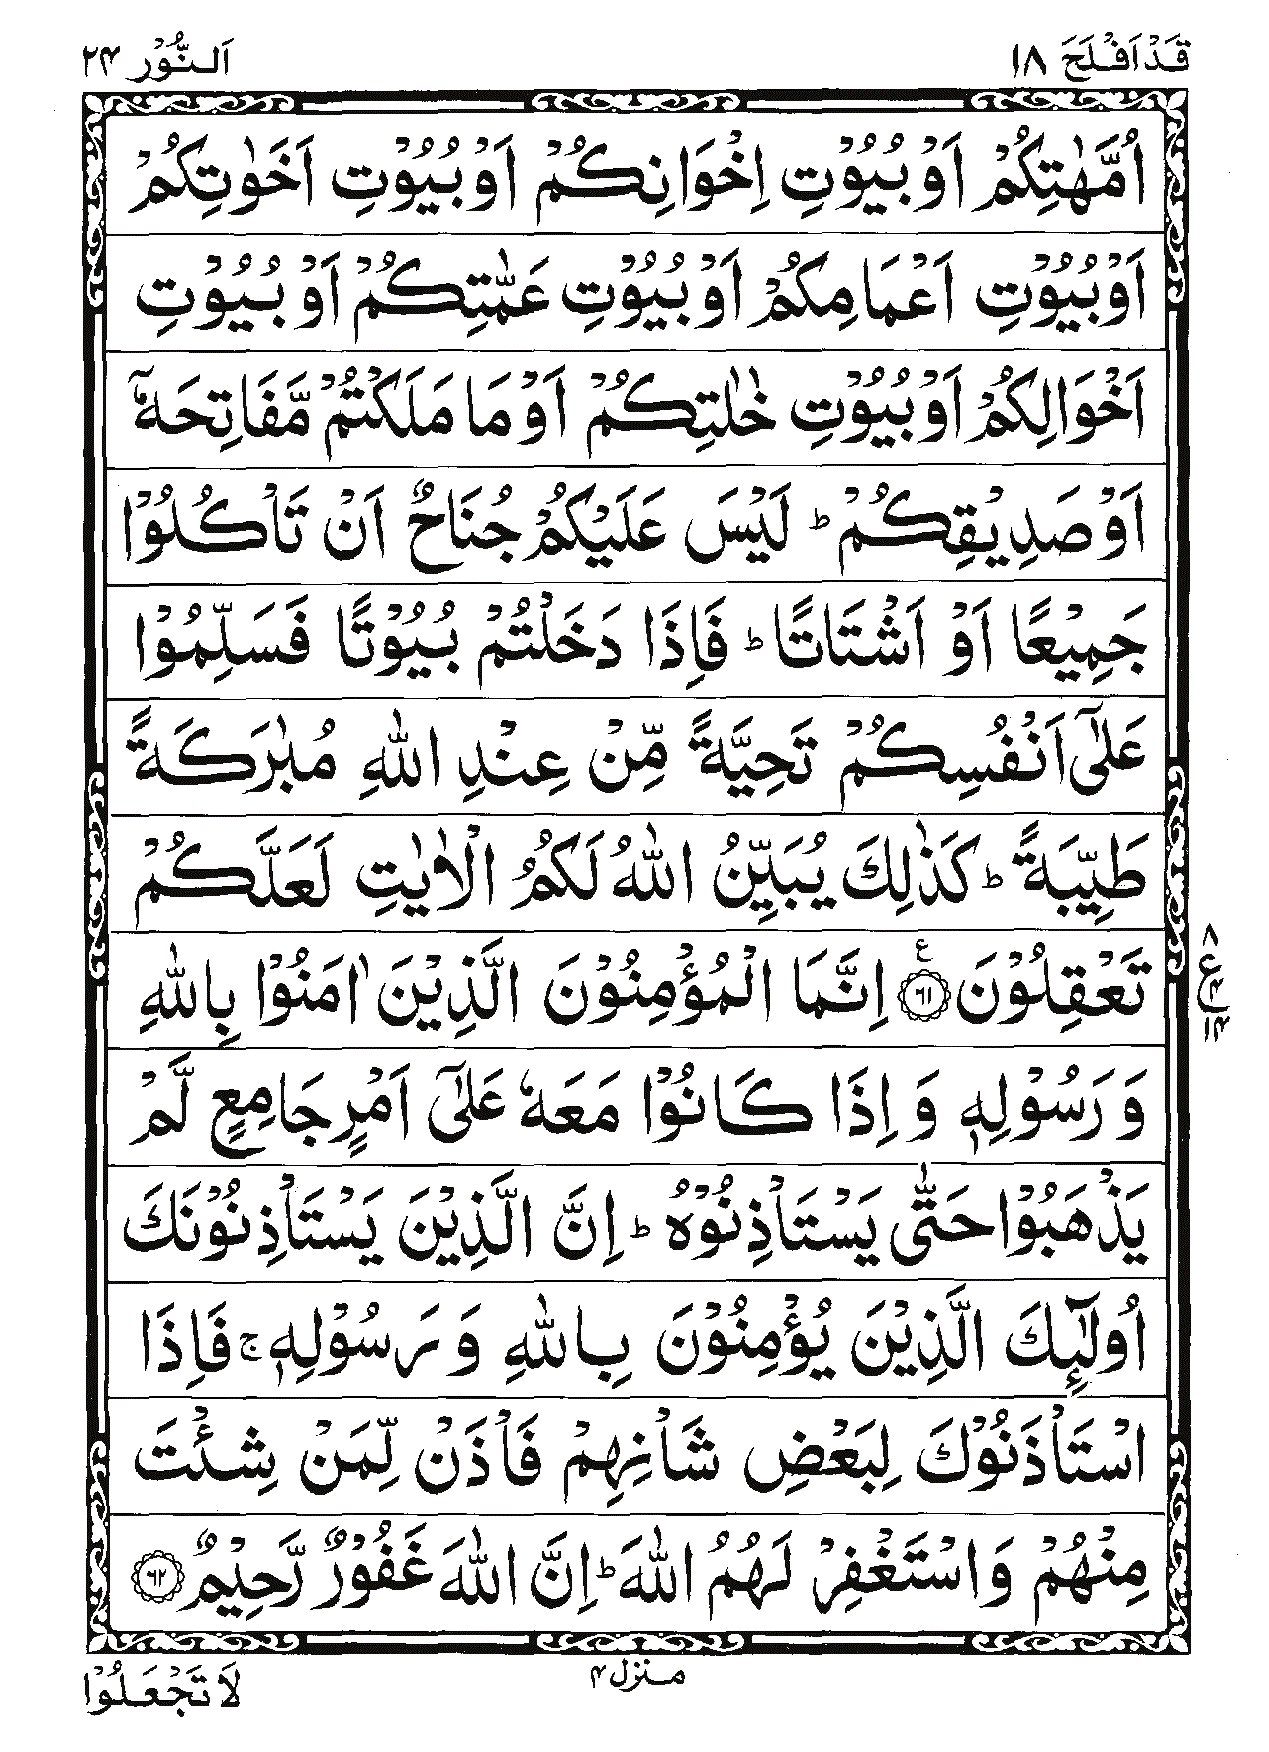 قَدْ اَفْلَحَ ١٨ اَلنُّوْر ٢٤
اُمَّهٰتِكُمْ اَوْ بُيُوْتِ اِخْوَانِكُمْ اَوْ بُيُوْتِ اَخَوٰتِكُمْ
اَوْ بُيُوْتِ اَعْمَامِكُمْ اَوْ بُيُوْتِ عَمّٰتِكُمْ اَوْ بُيُوْتِ
اَخْوَالِكُمْ اَوْ بُيُوْتِ خٰلٰتِكُمْ اَوْ مَا مَلَكْتُمْ مَّفَاتِحَهٗۤ
اَوْ صَدِيْقِكُمْ ؕ لَيْسَ عَلَيْكُمْ جُنَاحٌ اَنْ تَاْكُلُوْا
جَمِيْعًا اَوْ اَشْتَاتًا ؕ فَاِذَا دَخَلْتُمْ بُيُوْتًا فَسَلِّمُوْا
عَلٰۤى اَنْفُسِكُمْ تَحِيَّةً مِّنْ عِنْدِ اللّٰهِ مُبٰرَكَةً
طَيِّبَةً ؕ كَذٰلِكَ يُبَيِّنُ اللّٰهُ لَكُمُ الْاٰيٰتِ لَعَلَّكُمْ
تَعْقِلُوْنَ ۝٦١ ع اِنَّمَا الْمُؤْمِنُوْنَ الَّذِيْنَ اٰمَنُوْا بِاللّٰهِ
٨ ع ٤ ١٤
وَ رَسُوْلِهٖ وَ اِذَا كَانُوْا مَعَهٗ عَلٰۤى اَمْرٍ جَامِعٍ لَّمْ
يَذْهَبُوْا حَتّٰى يَسْتَاْذِنُوْهُ ؕ اِنَّ الَّذِيْنَ يَسْتَاْذِنُوْنَكَ
اُولٰٓئِكَ الَّذِيْنَ يُؤْمِنُوْنَ بِاللّٰهِ وَ رَسُوْلِهٖ ۚ فَاِذَا
اسْتَاْذَنُوْكَ لِبَعْضِ شَاْنِهِمْ فَاْذَنْ لِّمَنْ شِئْتَ
مِنْهُمْ وَ اسْتَغْفِرْ لَهُمُ اللّٰهَ ؕ اِنَّ اللّٰهَ غَفُوْرٌ رَّحِيْمٌ ۝٦٢
منزل ٤
لَا تَجْعَلُوْا